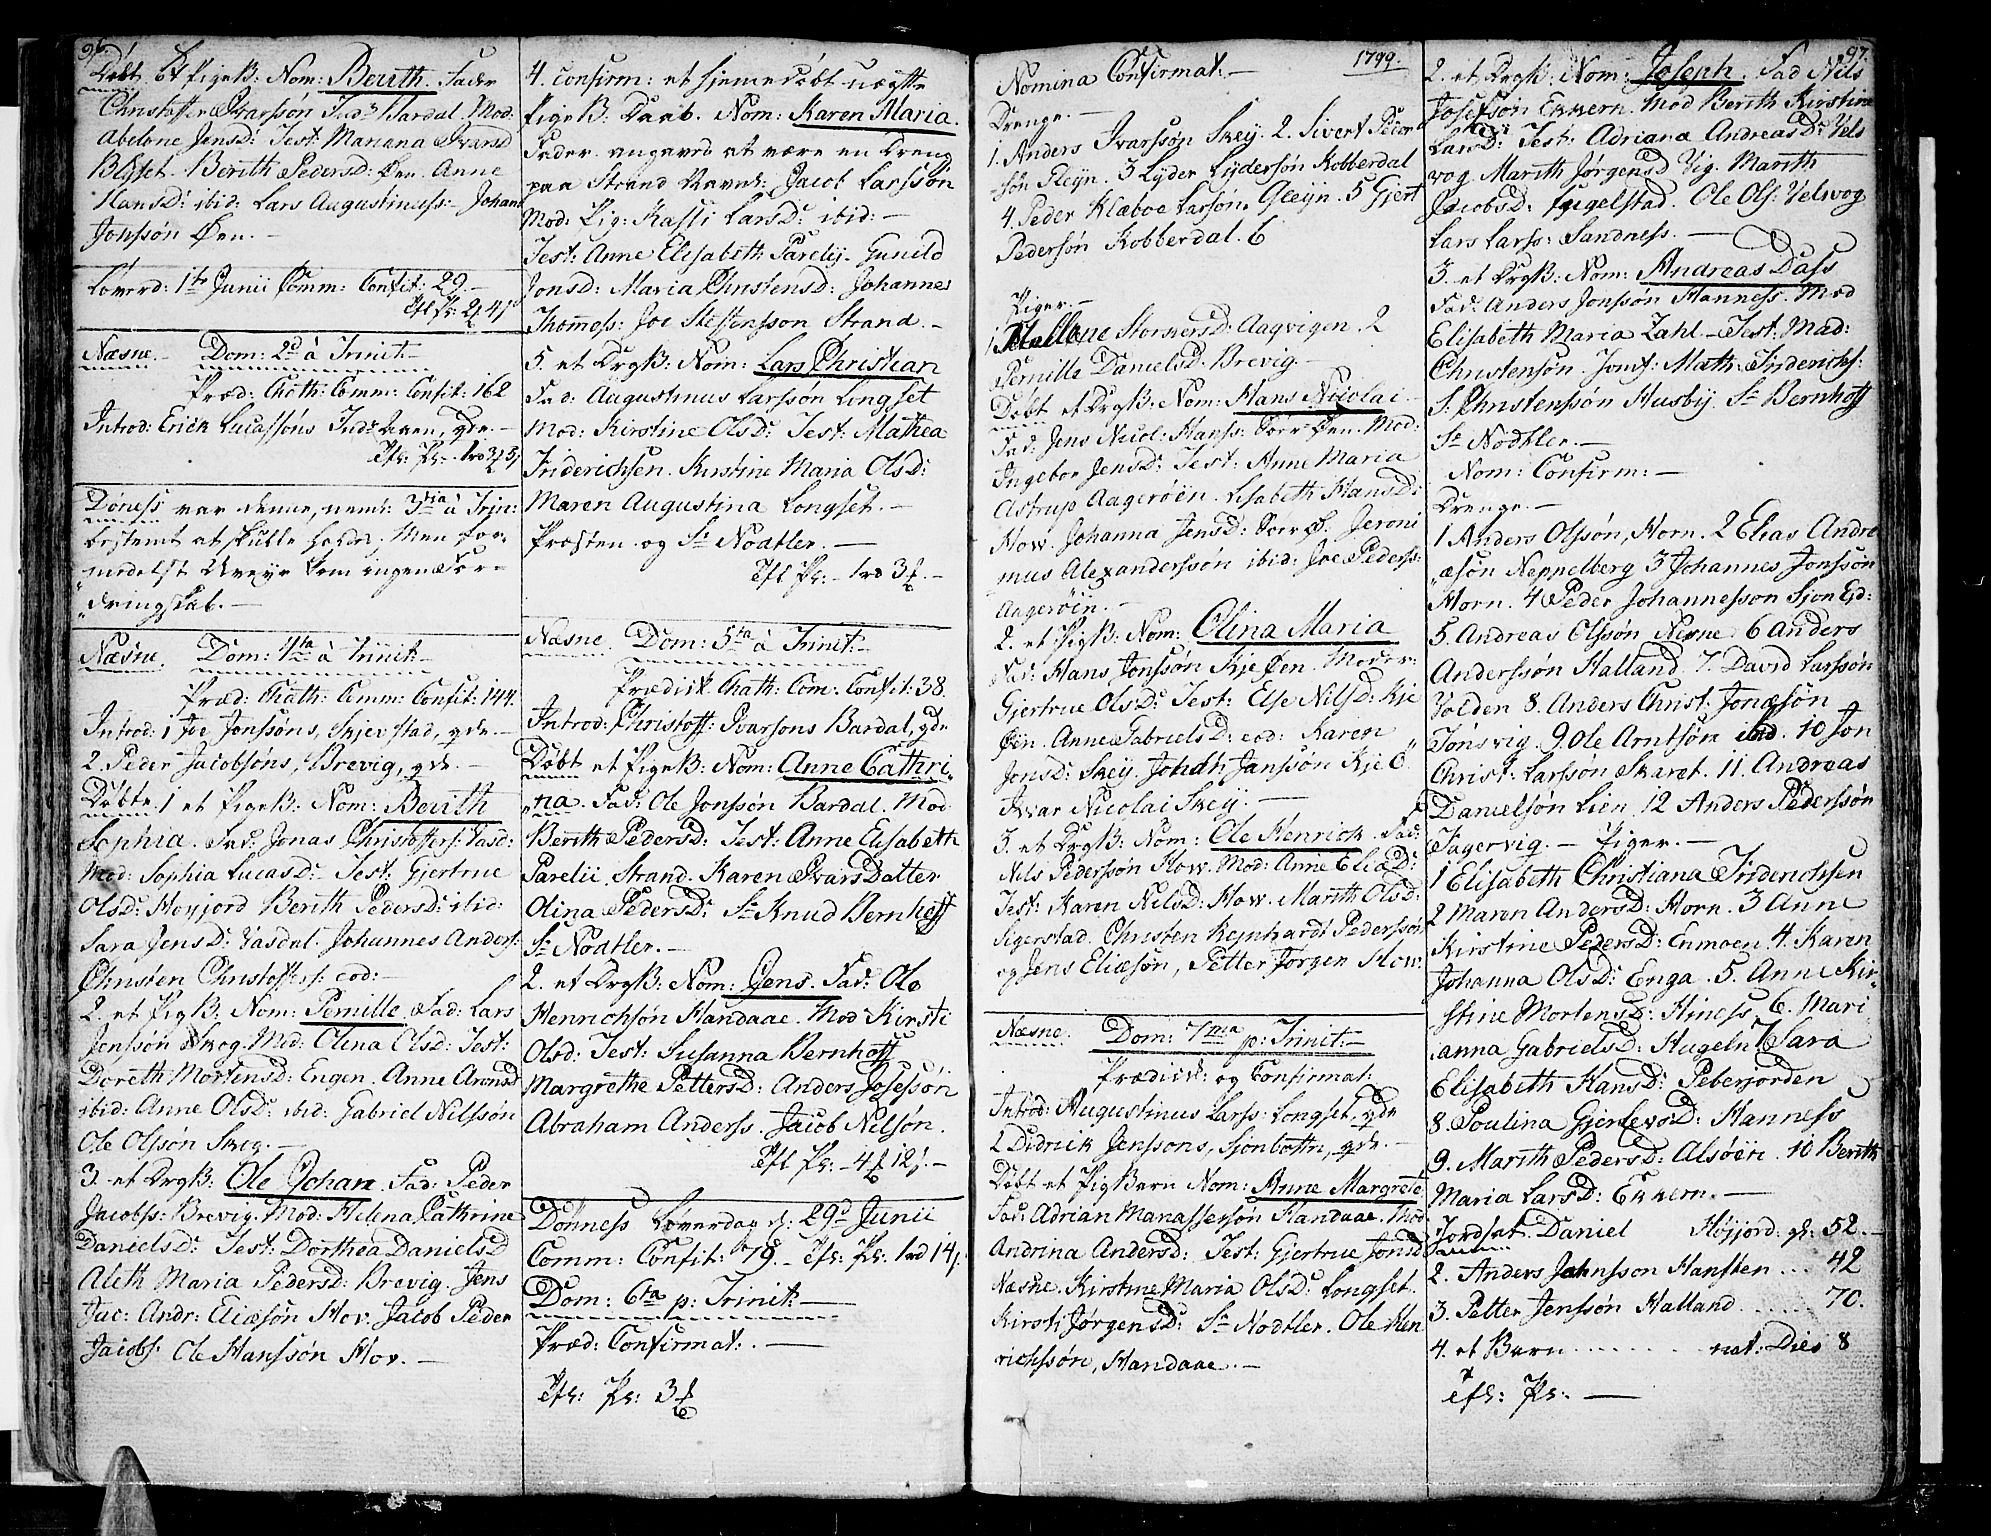 96.
Døbt et PigeB: Nom: Berith. Fader
Christoffer Ivarssøn Ind: Bardal. Mod:
Abelone Jensd: Test: Mariana Ivarsd
Berith Pedersd: Øen. Anne
Hansd: ibid: Lars Augustinuss: Johan
Jonssøn Øen.
Løverd: 1te Junii Comm: Confit: 29.
Næsne. Dom: 2d à Trinit:
Præd: Cath: Comm: Confit: 162
Introd: Erick Lucassøns Inds
Døness var denne, nemt: 3tia à Trin:
bestemt at skulle holdes. Men for-
medelst Uveyr kom ingen
Næsne. Dom: 4ta à Trinit
Præd: Cath: Comm: Confit: 144.
Introd: 1 Joe Jonssøns, Skjevstad, qde.
2. Peder Jacobsøns, Brevig, qde.
Døbte. 1 et PigeB: Nom: Berith
Sophia. Fad: Jonas Christoffers:
Mod: Sophia Lucasd: Test: Gjertrue
Olsd: Høyjord Berith Pedersd: ibid:
Sara Jensd: Vasdal. Johannes Anders:
Christen Christoff: s: eod:
2. et PigB: Nom: Pernille. Fad: Lars
Jonssøn Skog. Mod: Olina Olsd: Test:
Doreth Mortensd: Engen. Anne Aronsd
ibid: Anne Olsd: ibid: Gabriel Nilssøn
Ole Olssøn Skog.
3. et DrgB: Ole Johan. Fad: Peder
Jacobss: Brevig. Mod: Helena Cathrine
Danielsd: Test: Dorthea Danielsd
Aleth Maria Pedersd: Brevig. Jens
Jac: Andr: Eliæsøn Hov. Jacob Peder
Jacobs: Ole Hanssøn Hov.
4. Confirm: et hjemedøbt uægte
PigeB: Daab. Nom: Karen Maria.
Fader angaves at være en Dreng
paa Strand Navnl: Jacob Larssøn
Mod: Pig: Kasti Larsd: ibid:
Test: Anne Elisabeth Parelij. Gunild
Jonsd: Maria Christensd: Johannes
Thomess: Joe Steffensson Strand.
5. et DrgB: Nom: Lars Christian
Fad: Augustinus Larssøn Longset
Mod: Kirstine Olsd: Test: Mathea
Friderichsen. Kirstine Maria Olsd:
Maren Augustina Longset.
Præsten og Sr Nodtler.
Næsne. Dom: 5ta à Trinit
Prædik: Cath: Com: Confit: 38.
Introd: Christoff: Ivarsons Bardal, qde
Døbt et PigeB: Nom: Anne Cathri-
na. Fad: Ole Jonssøn Bardal. Mod
Berith Pedersd: Test: Anne Elisabeth
Parelii Strand. Karen IvarsDatter
Olina Pedersd: Sr Knud Bernhoff
Sr Nodtler.
2. et DrgB: Nom: Jens. Fad: Ole
Henrichsøn Handaae. Mod Kirsti
Olsd: Test: Susanna Bernhoff
Margrethe Pettersd: Anders Josefsøn
Abraham Anderss. Jacob Nelsøn.
Dønness Løverdag d: 29d Junii
Comm: Confit: 79.
Dom: 6ta p: Trinit:
Præd: Confirmat:
Nomina Confirmat: 1799.
Drenge.
1. Anders Ivarssøn Skey. 2. Sivert Peder
søn Gleyn. 3 Lyder Lydersøn Kobberdal
4 Peder Klæboe Larsøn Gleyn. 5 Gjert
Pedersøn Kobberdal. 6
Piger.
1 Storkersd: Aagvigen. 2
Pernille Danielsd: Brevig.
Døbt et DrgB: Nom: Hans Nicolai
Fad: Jens Nicol: Hanss: Sørr Øen. Mod:
Ingebor Jensd: Test: Anne Maria
Astrup Aagerøen. Lisabeth Hansd:
How. Johanna Jensd: Sørr Ø. Jeroni
mus Alexanderssøn ibid: Joe Pederss:
Aagerøen.
2. et PigB: Nom: Olina Maria
Fad: Hans Jonssøn Kje Øen. Moder:
Gjertrue Olsd: Test: Else Nilsd: Kje
Øen. Anne Gabrielsd: eod: Karen
Jonsd: Skey. Johan Janssøn Kje Ø
Ivar Nicolai Skey.
3. et DrgB: Nom: Ole Henrick. Fad:
Nils Pederssøn How. Mod: Anne Eliæd:
Test: Karen Nilsd: How. Marith Olsd:
Segerstad. Christen Reinhardt Pederssøn
og Jens Eliæsøn, Petter Jørgen How.
Næsne. Dom: 7ma p: Trinit:
Prædik: og Confirmat:
Introd: Augustinus Larss: Longset. qde
2 Didrick Jenssons, Sjonbotn, qde.
Døbt et PigBarn Nom: Anne Margrete
Fad: Adrian Manassersøn Handaae. Mod
Andrina Andersd: Test: Gjertrue Jonsd
Næsne. Kirstine Maria Olsd: Longset.
Kirsti Jørgensd: Sr Nodtler. Ole Hen
richssøn, Handaae.
97.
2. et DrgB: Nom: Joseph. Fad Nils
Josefsøn Ekkern. Mod Berith Kirstine
Larsd: Test: Adriana Andreasd: Vels
vog Marith Jørgensd Vig. Marith
Jacobsd: Fugelstad. Ole Ols: Velsvog
Lars Larss: Sandness.
3. et DrgB: Nom: Andreas Dass
Fad: Anders Jonssøn Hanness. Mod
Elisabeth Maria Zahl. Test: Mad:
Christensøn. Jomf: Math: Friderichs:
S. Christenssøn Husby. Sr Bernhoff
Sr Nodtler.
Nom: Confirm:
Drenge.
1 Anders Olssøn, Horn. 2 Elias Andre
æsøn Neppelberg 3 Johannes Jonssøn
Horn. 4 Peder Johannesson Sjon Eid:
5. Andreas Olssøn Nesne 6 Anders
Anderssøn Halland. 7. David Larssøn
Volden 8. Anders Christ: Jonæsøn
Tonsvig. 9. Ole Arntsøn ibid. 10 Jon
Christ: Larssøn Skaret. 11. Andreas
Danielsøn Lien 12 Anders Pederssøn
Fagervig. Piger.
1 Elisabeth Christiana Friderichsen
2 Maren Andersd: Horn. 3 Anne
Kirstine Pedersd: Enmoen 4. Karen
Johanna Olsd: Enga. 5. Anne Kir-
stine Mortensd: Hiness 6. Mari
anna Gabrielsd: Hugeln 7 Sara
Elisabeth Hansd: Peberjorden
8. Poulina Gjerlevsd: Hanness
9. Marith Pedersd: Alsøen. 10 Berith
Maria Larsd: Ekkern.
Jordsat Daniel Høyjord. gl: 52.
2. Anders Johnsson Hansten ... 42
3. Petter Jenssøn Halland ..... 70.
4. et Barn ....... nat: Dies 8